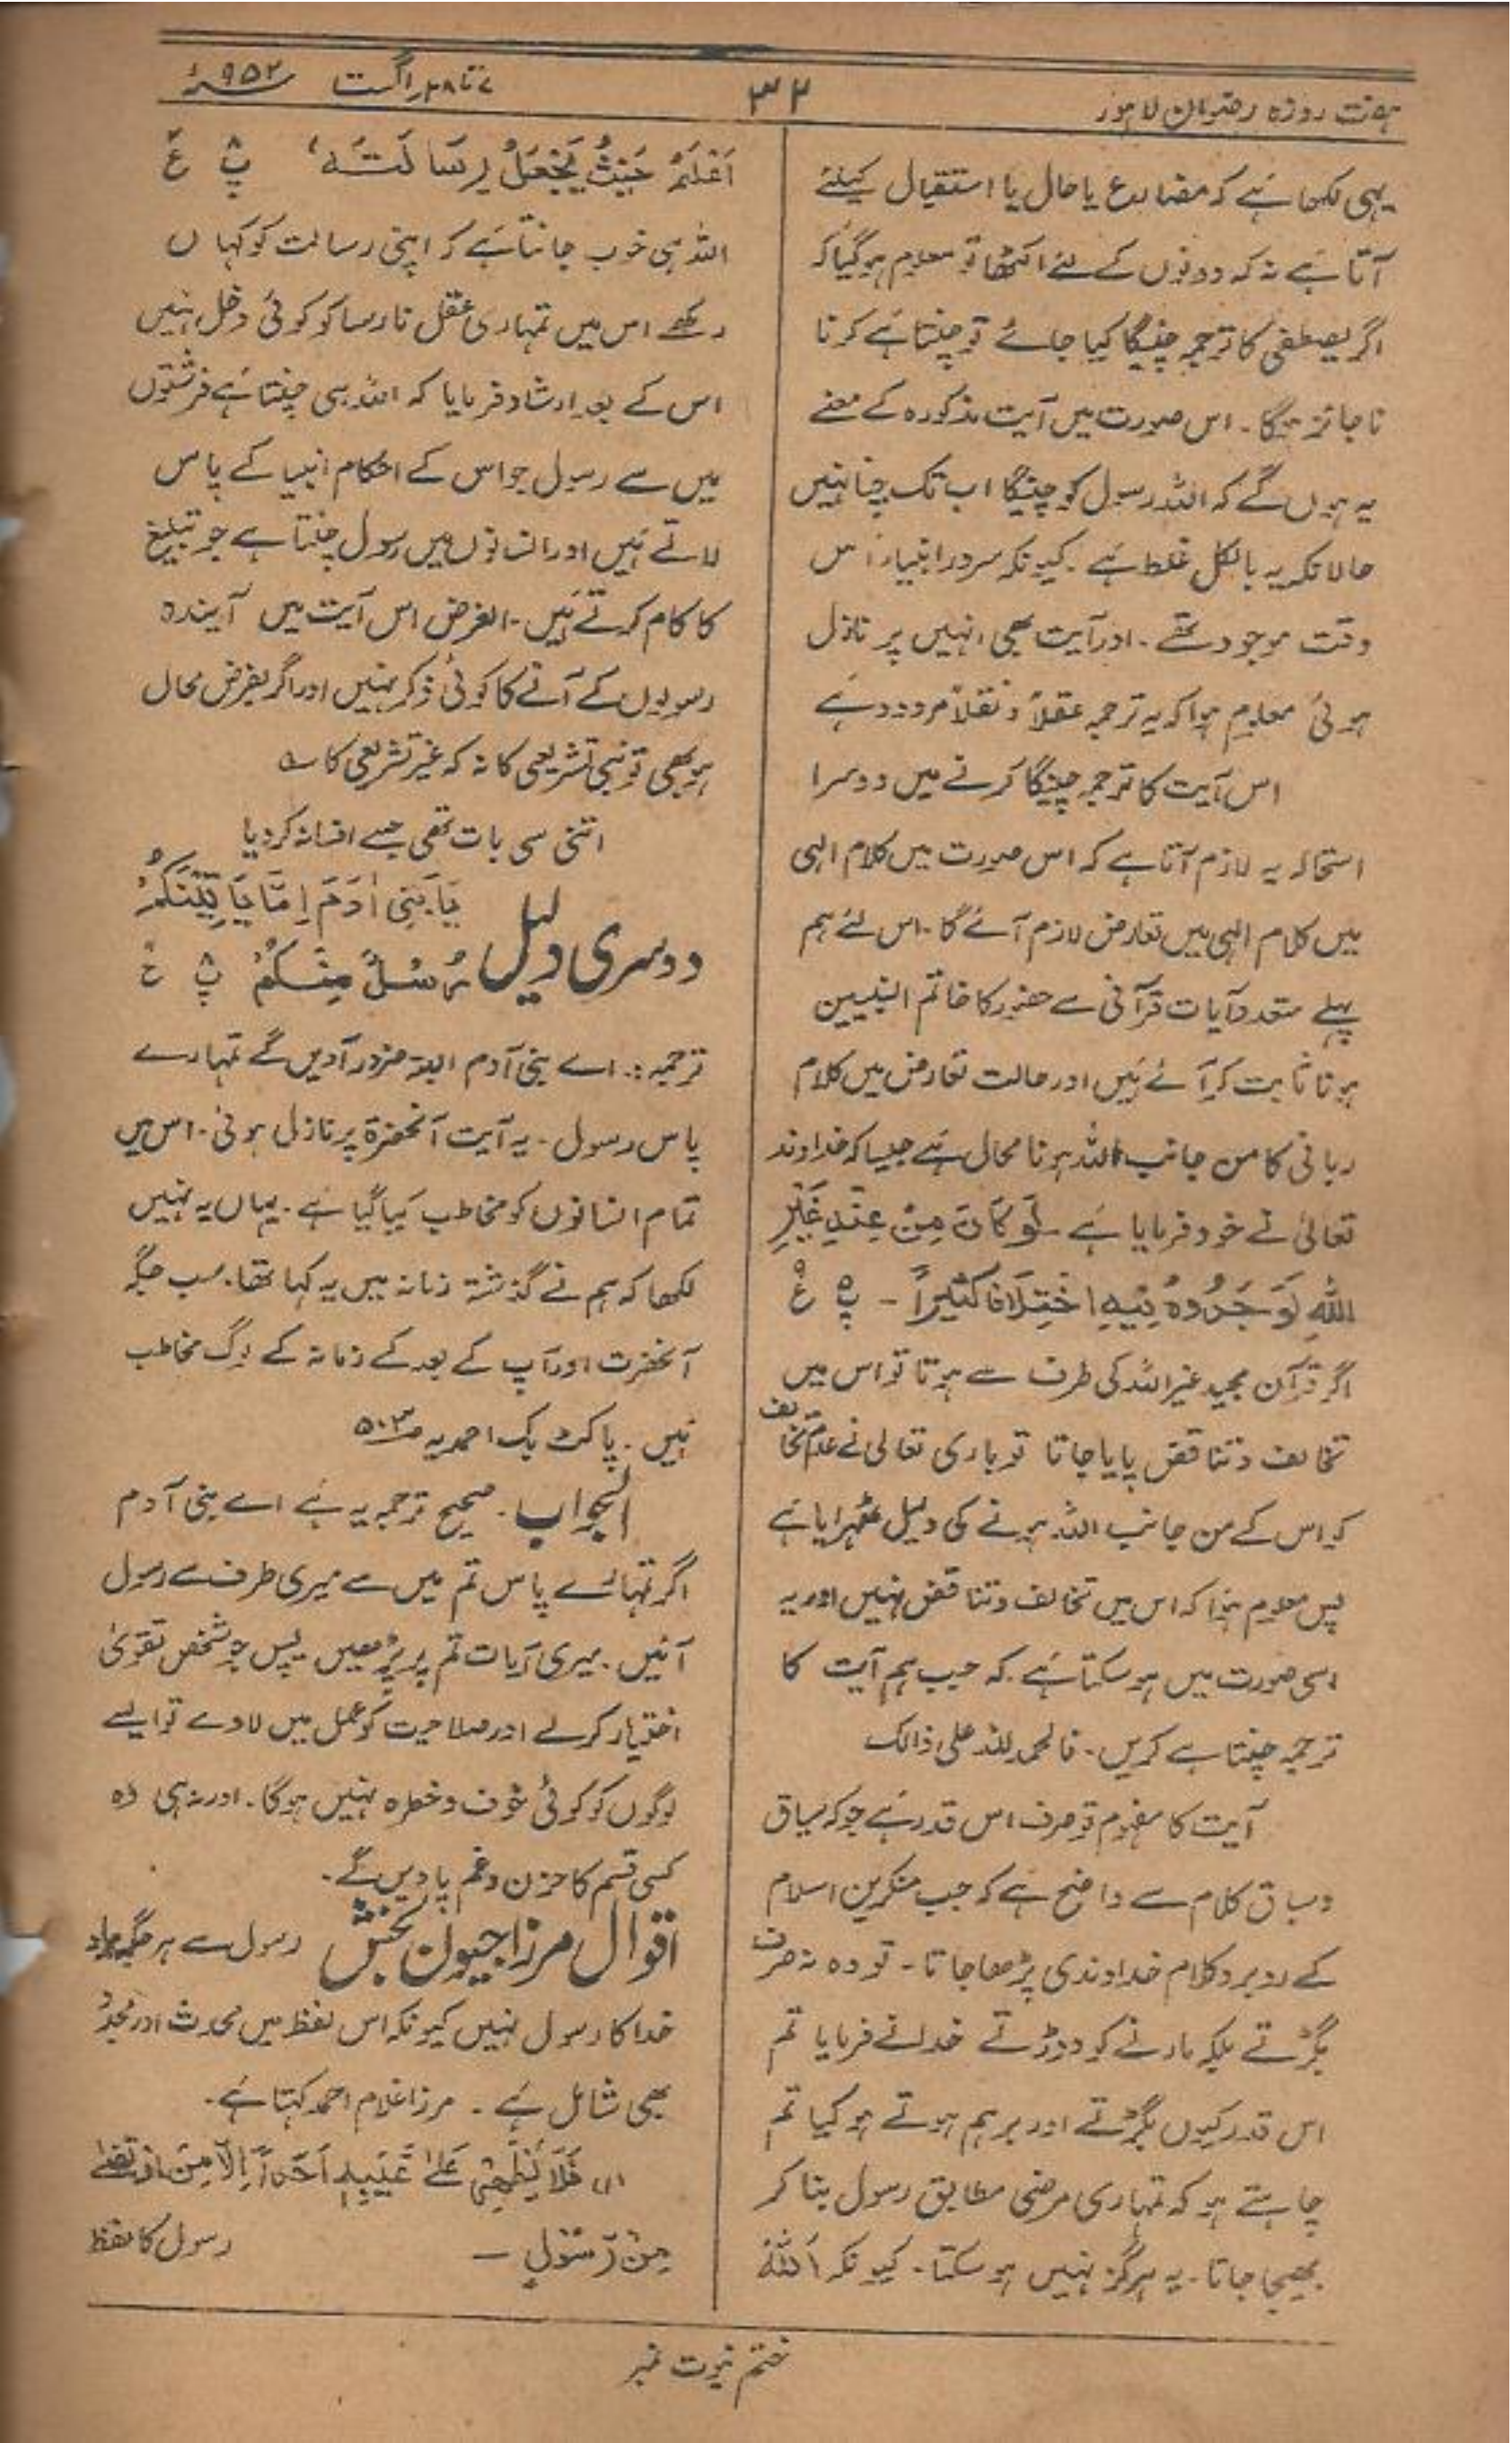 ہفت روزہ رضوان لاہور
۳۲
۷ تا ۲۸ اگست ۱۹۵۲ء
یہی لکھا ہے کہ مضارع یا حال یا استقبال کیلئے
آتا ہے نہ کہ دونوں کے لئے اکٹھا تو معلوم ہو گیا کہ
اگر یصطفی کا ترجمہ چنیگا کیا جائے تو چنتا ہے کرنا
ناجائز ہوگا۔ اس صورت میں آیت مذکورہ کے معنے
یہ ہوں گے کہ اللہ رسول کو چنیگا اب تک چنا نہیں
حالانکہ یہ بالکل غلط ہے۔ کیونکہ سرور انبیاء اس
وقت موجود تھے۔ اور آیت بھی انہیں پر نازل
ہوئی معلوم ہوا کہ یہ ترجمہ عقلاً و نقلاً مردود ہے
اس آیت کا ترجمہ چنیگا کرنے میں دوسرا
استحالہ یہ لازم آتا ہے کہ اس صورت میں کلام الہی
میں کلام الہی میں تعارض لازم آئے گا۔ اس لئے ہم
پہلے متعدد آیات قرآنی سے حضور کا خاتم النبیین
ہونا ثابت کر آئے ہیں اور حالت تعارض میں کلام
ربانی کا من جانب اللہ ہونا محال ہے جیسا کہ خداوند
تعالیٰ نے خود فرمایا ہے لَوْ کَانَ مِنْ عِنْدِ غَیْرِ
اللّٰہِ لَوَجَدُوْہُ فِیْہِ اخْتِلَافًا کَثِیْرًا - پ۵ ع
اگر قرآن مجید غیر اللہ کی طرف سے ہوتا تو اس میں
تخالف و تناقض پایا جاتا تو باری تعالی نے عدم تخالف
کو اس کے من جانب اللہ ہونے کی دلیل ٹھہرایا ہے
پس معلوم ہوا کہ اس میں تخالف و تناقض نہیں اور یہ
اسی صورت میں ہو سکتا ہے۔ کہ جب ہم آیت کا
ترجمہ چنتا ہے کریں۔ فالحمد للہ علی ذالک
آیت کا مفہوم تو صرف اس قدر ہے جو کہ سیاق
و سباق کلام سے واضح ہے کہ جب منکرین اسلام
کے روبرو کلام خداوندی پڑھا جاتا۔ تو وہ نہ صرف
بگڑتے بلکہ مارنے کو دوڑتے خدا نے فرمایا تم
اس قدر کیوں بگڑتے اور برہم ہوتے ہو کیا تم
چاہتے ہو کہ تمہاری مرضی مطابق رسول بنا کر
بھیجا جاتا۔ یہ ہرگز نہیں ہو سکتا۔ کیونکہ اَللّٰہُ
اَعْلَمُ حَیْثُ یَجْعَلُ رِسَالَتَہٗ، پ۸ ع
اللہ ہی خوب جانتا ہے کہ اپنی رسالت کو کہاں
رکھے اس میں تمہاری عقل نارسا کو کوئی دخل نہیں
اس کے بعد ارشاد فرمایا کہ اللہ ہی چنتا ہے فرشتوں
میں سے رسول جو اس کے احکام انبیا کے پاس
لاتے ہیں اور انسانوں میں رسول چنتا ہے جو تبلیغ
کا کام کرتے ہیں۔ الغرض اس آیت میں آیندہ
رسولوں کے آنے کا کوئی ذکر نہیں اور اگر بفرض محال
ہو بھی تو نبی تشریعی کا نہ کہ غیر تشریعی کا ؎
اتنی سی بات تھی جسے افسانہ کر دیا
دوسری دلیل یَا بَنِیْ اٰدَمَ اِمَّا یَاْتِیَنَّکُمْ
رُسُلٌ مِنْکُمْ پ۸ ع
ترجمہ:۔ اے بنی آدم البتہ ضرور آویں گے تمہارے
پاس رسول۔ یہ آیت آنحضرۃ پر نازل ہوئی۔ اس میں
تمام انسانوں کو مخاطب کیا گیا ہے۔ یہاں یہ نہیں
لکھا کہ ہم نے گذشتہ زمانہ میں یہ کہا تھا۔ سب جگہ
آنحضرت اور آپ کے بعد کے زمانہ کے لوگ مخاطب
ہیں۔ پاکٹ بک احمدیہ ص۵۰۳
الجواب۔ صحیح ترجمہ یہ ہے اے بنی آدم
اگر تمہارے پاس تم میں سے میری طرف سے رسول
آئیں۔ میری آیات تم پر پڑھیں۔ پس جو شخص تقویٰ
اختیار کرلے اور صلاحیت کو عمل میں لاوے تو ایسے
لوگوں کو کوئی خوف و خطرہ نہیں ہوگا۔ اور نہ ہی وہ
کسی قسم کا حزن و غم پاویں گے۔
اقوال مرزا جیون بخش رسول سے ہر جگہ مراد
خدا کا رسول نہیں کیونکہ اس لفظ میں محدث اور مجدد
بھی شامل ہے۔ مرزا غلام احمد کہتا ہے۔
(۱) فَلَا یُظْهِرُ عَلٰی غَیْبِہٖ اَحَدًا اِلَّا مَنِ ارْتَضٰی
مِنْ رَّسُوْلٍ — رسول کا لفظ
ختم نبوت نمبر